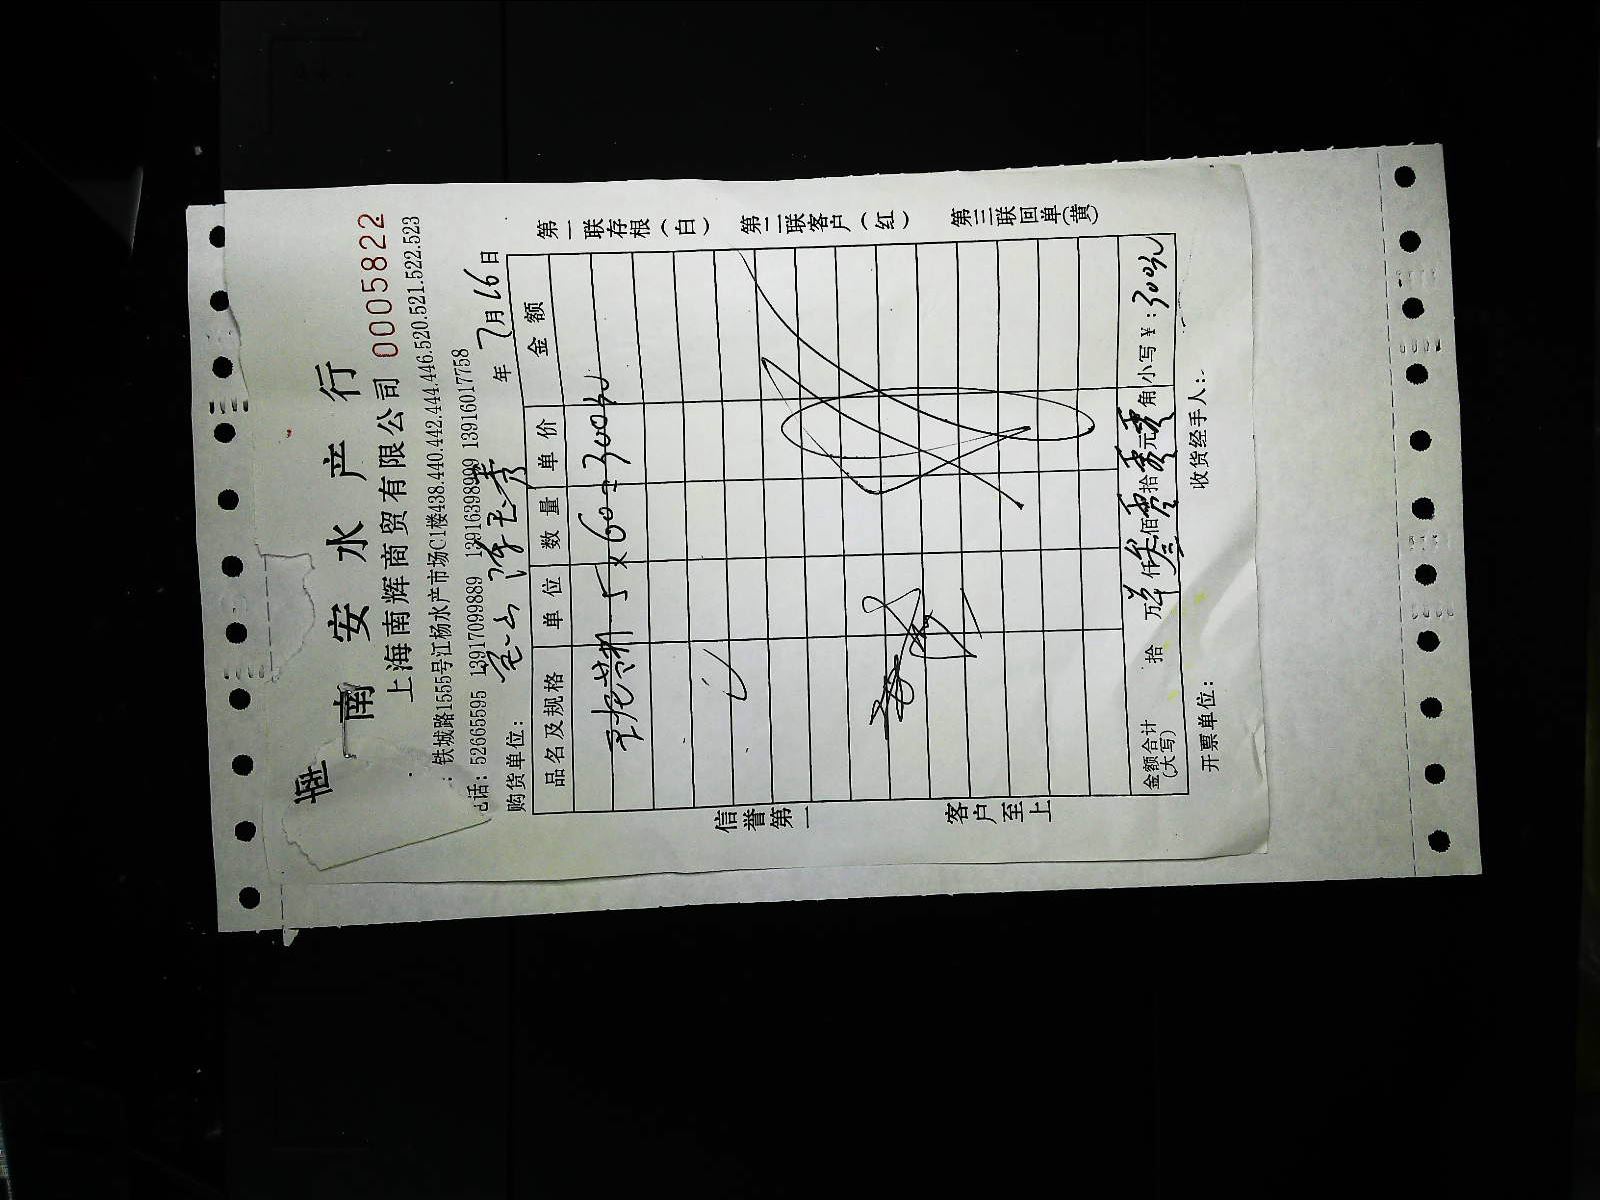 南安水产行
上海南辉商贸有限公司 0005822
:铁城路1555号江杨水产市场C1楼438.440.442.444.446.520.521.522.523
话:52665595 13917099889 13916398999 13916017758
购货单位: 年7月16日
品名及规格 单位 数量 单价 金额
5×60=300元
金额合计(大写) 拾 万 仟叁佰零拾零元零角 小写￥:300元
开票单位: 收货经手人:
信誉第一
客户至上
第一联存根(白)
第二联客户(红)
第三联回单(黄)